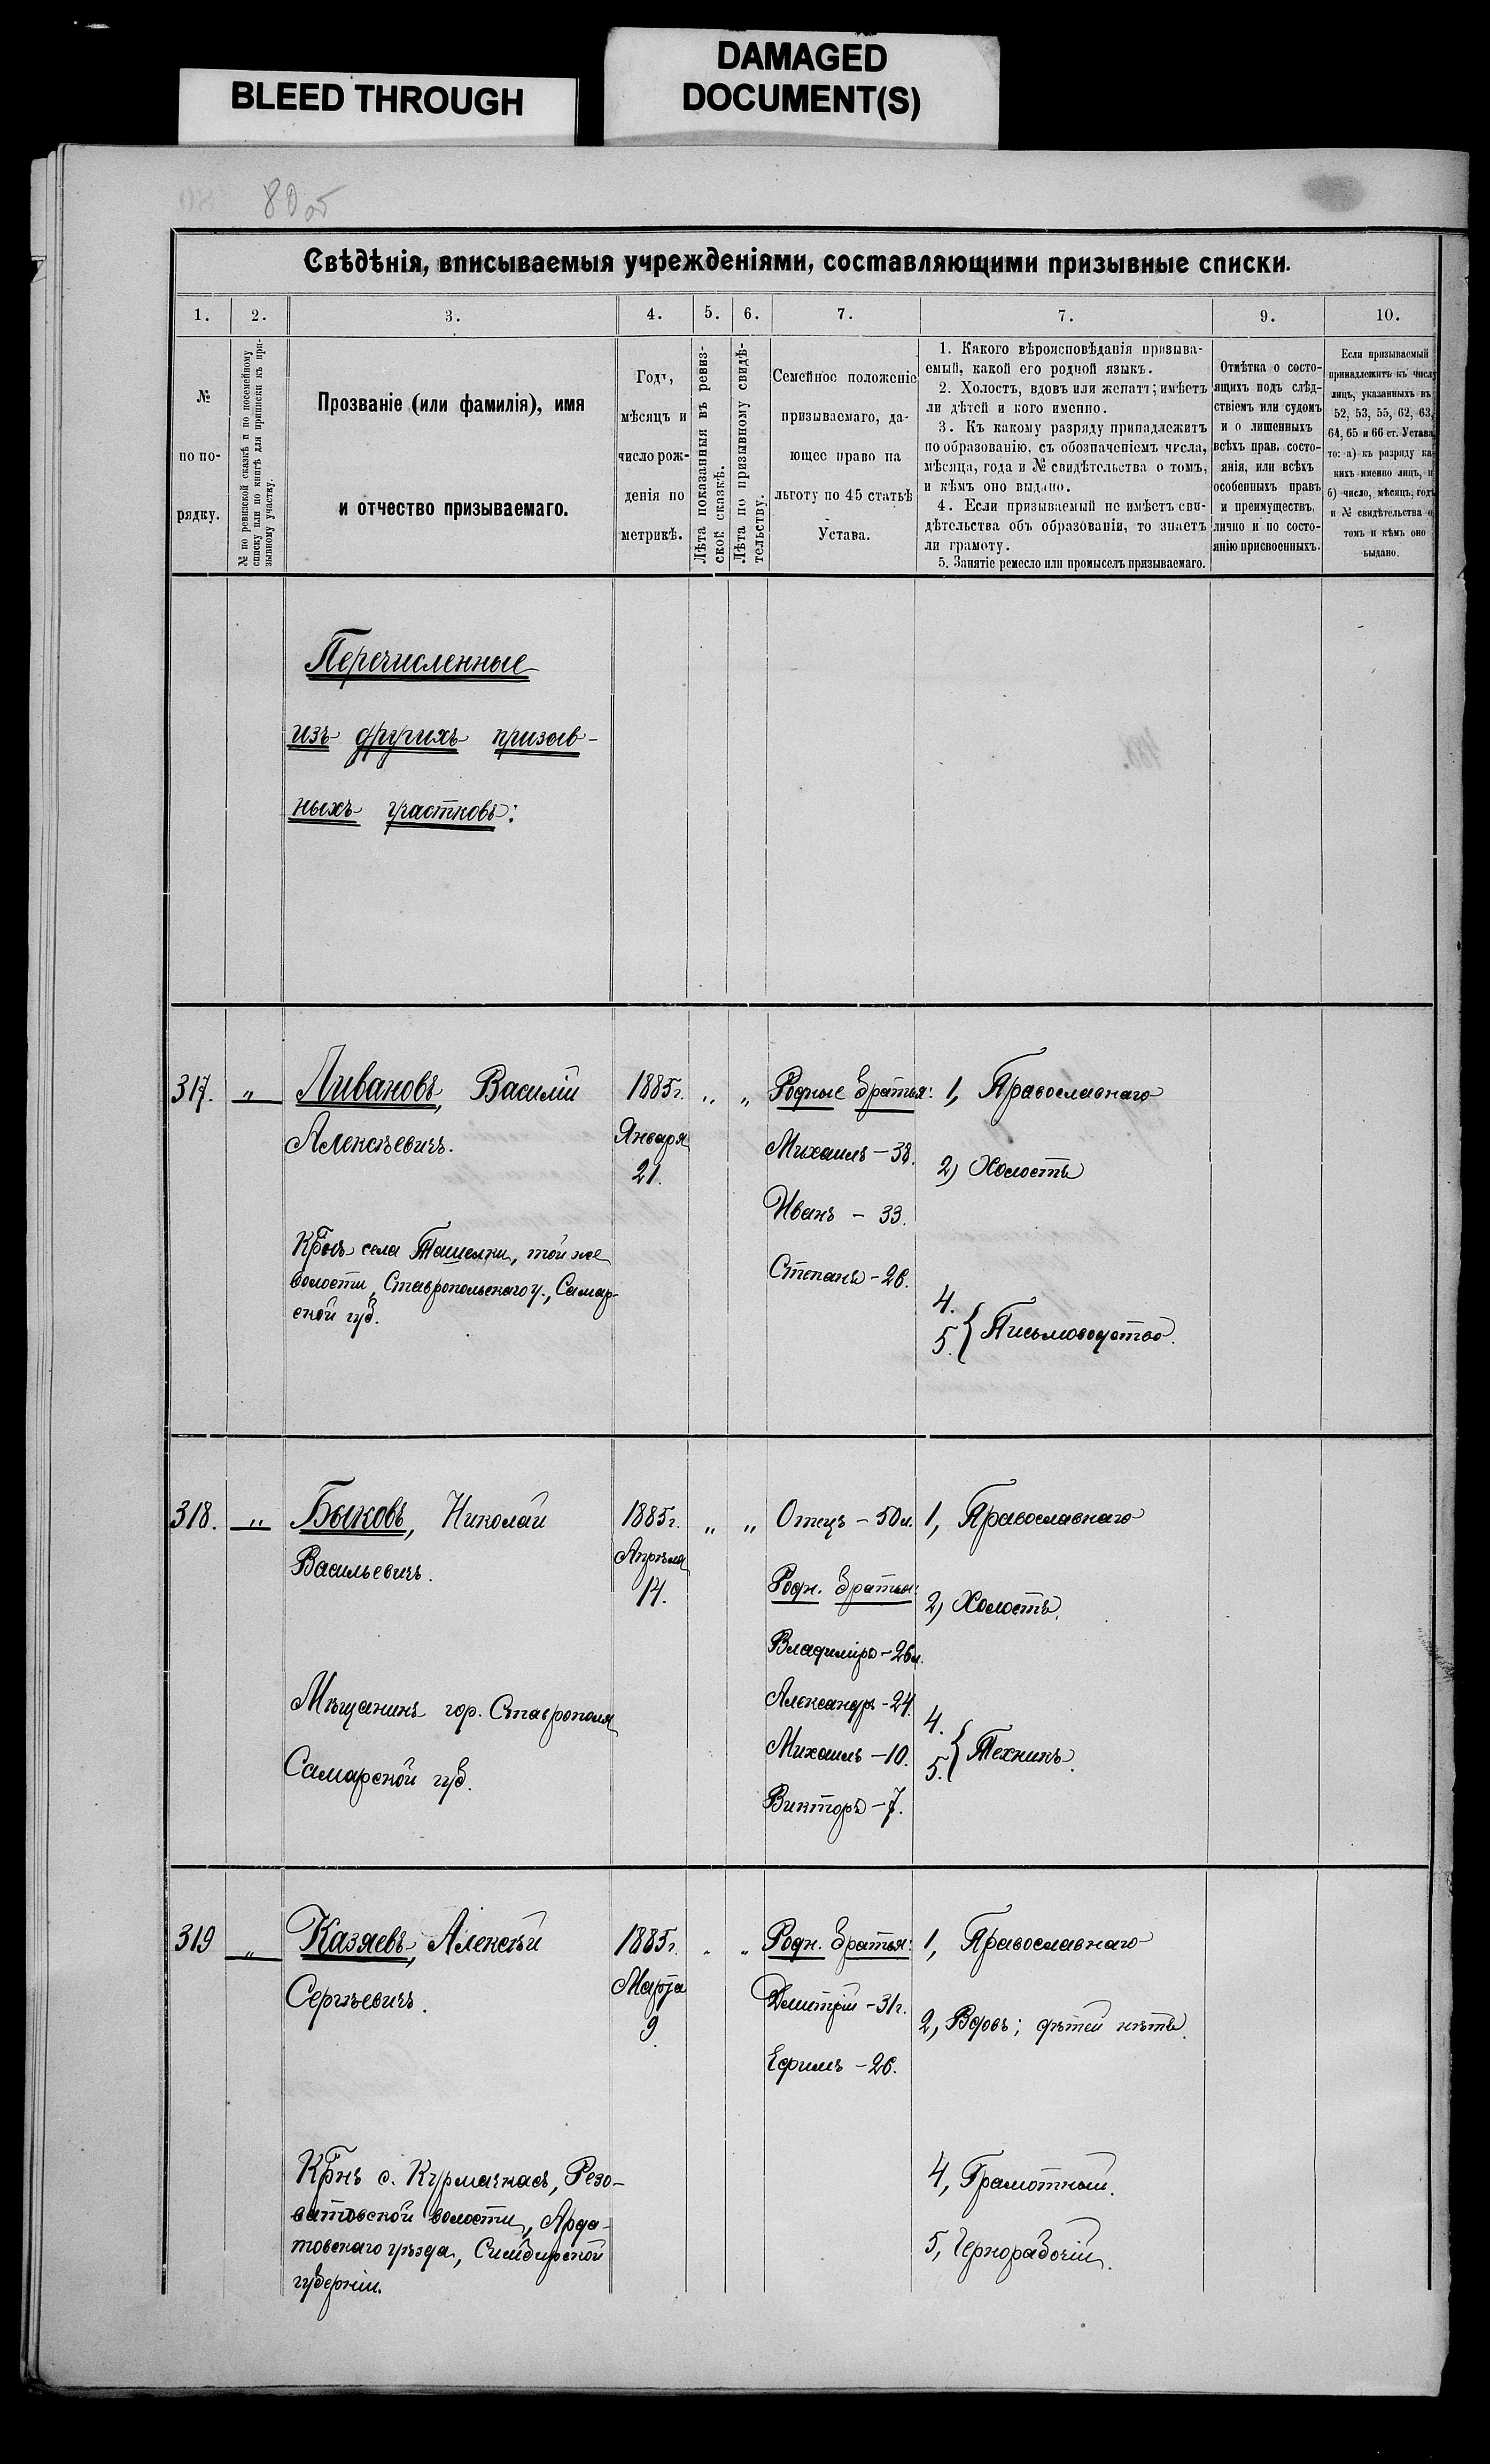 BLEED THROUGH
DAMAGED
DOCUMENT(S)
80 об
Свѣдѣнія, вписываемыя учрежденіями, составляющими призывные списки.
1. 2. 3. 4. 5. 6. 7. 7. 9. 10.
№
по по-
рядку.
№ по ревизской сказкѣ и по посемейному
списку или по книгѣ для приписки къ при-
зывному участку.
Прозваніе (или фамилія), имя
и отчество призываемаго.
Годъ,
мѣсяцъ и
число рож-
денія по
метрикѣ.
Лѣта показанныя въ ревиз-
ской сказкѣ.
Лѣта по призывному свидѣ-
тельству.
Семейное положеніе
призываемаго, да-
ющее право на
льготу по 45 статьѣ
Устава.
1. Какого вѣроисповѣданія призыва-
емый, какой его родной языкъ.
2. Холостъ, вдовъ или женатъ; имѣетъ
ли дѣтей и кого именно.
3. Къ какому разряду принадлежитъ
по образованію, съ обозначеніемъ числа,
мѣсяца, года и № свидѣтельства о томъ,
и кѣмъ оно выдано.
4. Если призываемый не имѣетъ сви-
дѣтельства объ образованіи, то знаетъ
ли грамоту.
5. Занятіе ремесло или промыселъ призываемаго.
Отмѣтка о состо-
ящихъ подъ слѣд-
ствіемъ или судомъ
и о лишенныхъ
всѣхъ прав. состо-
янія, или всѣхъ
особенныхъ правъ
и преимуществъ,
лично и по состо-
янію присвоенныхъ.
Если призываемый
принадлежитъ къ числу
лицъ, указанныхъ въ
52, 53, 55, 62, 63,
64, 65 и 66 ст. Устава,
то: а) къ разряду ка-
кихъ именно лицъ, и
б) число, мѣсяцъ, годъ
и № свидѣтельства о
томъ и кѣмъ оно
выдано.
Перечисленные
изъ другихъ призыв-
ныхъ участковъ:
317. „ Ливановъ, Василій
Алексѣевичъ.
Кр-нъ села Ташелки, той же
волости, Ставропольскаго у., Самар-
ской губ.
1885г. „ „
Января
21.
Родные братья:
Михаилъ – 38.
Иванъ – 33.
Степанъ – 26.
1, Православнаго
2) Холостъ
4.
5. { Письмоводство.
318. „ Быковъ, Николай
Васильевичъ.
Мѣщанинъ гор. Ставрополя
Самарской губ.
1885г. „ „
Апрѣля
14.
Отецъ – 50л.
Родн. братья:
Владиміръ – 26л.
Александръ – 24.
Михаилъ – 10.
Викторъ – 7.
1, Православнаго
2) Холостъ.
4.
5. { Техникъ.
319 „ Казяевъ, Алексѣй
Сергѣевичъ.
Кр-нъ с. Курмачкасъ, Резо-
ватовской волости, Арда-
товскаго уѣзда, Симбирской
губерніи.
1885г. „ „
Марта
9.
Родн. братья:
Дмитрій – 31г.
Ефимъ – 26.
1, Православнаго
2, Вдовъ; дѣтей нѣтъ.
4, Грамотный.
5, Чернорабочій.